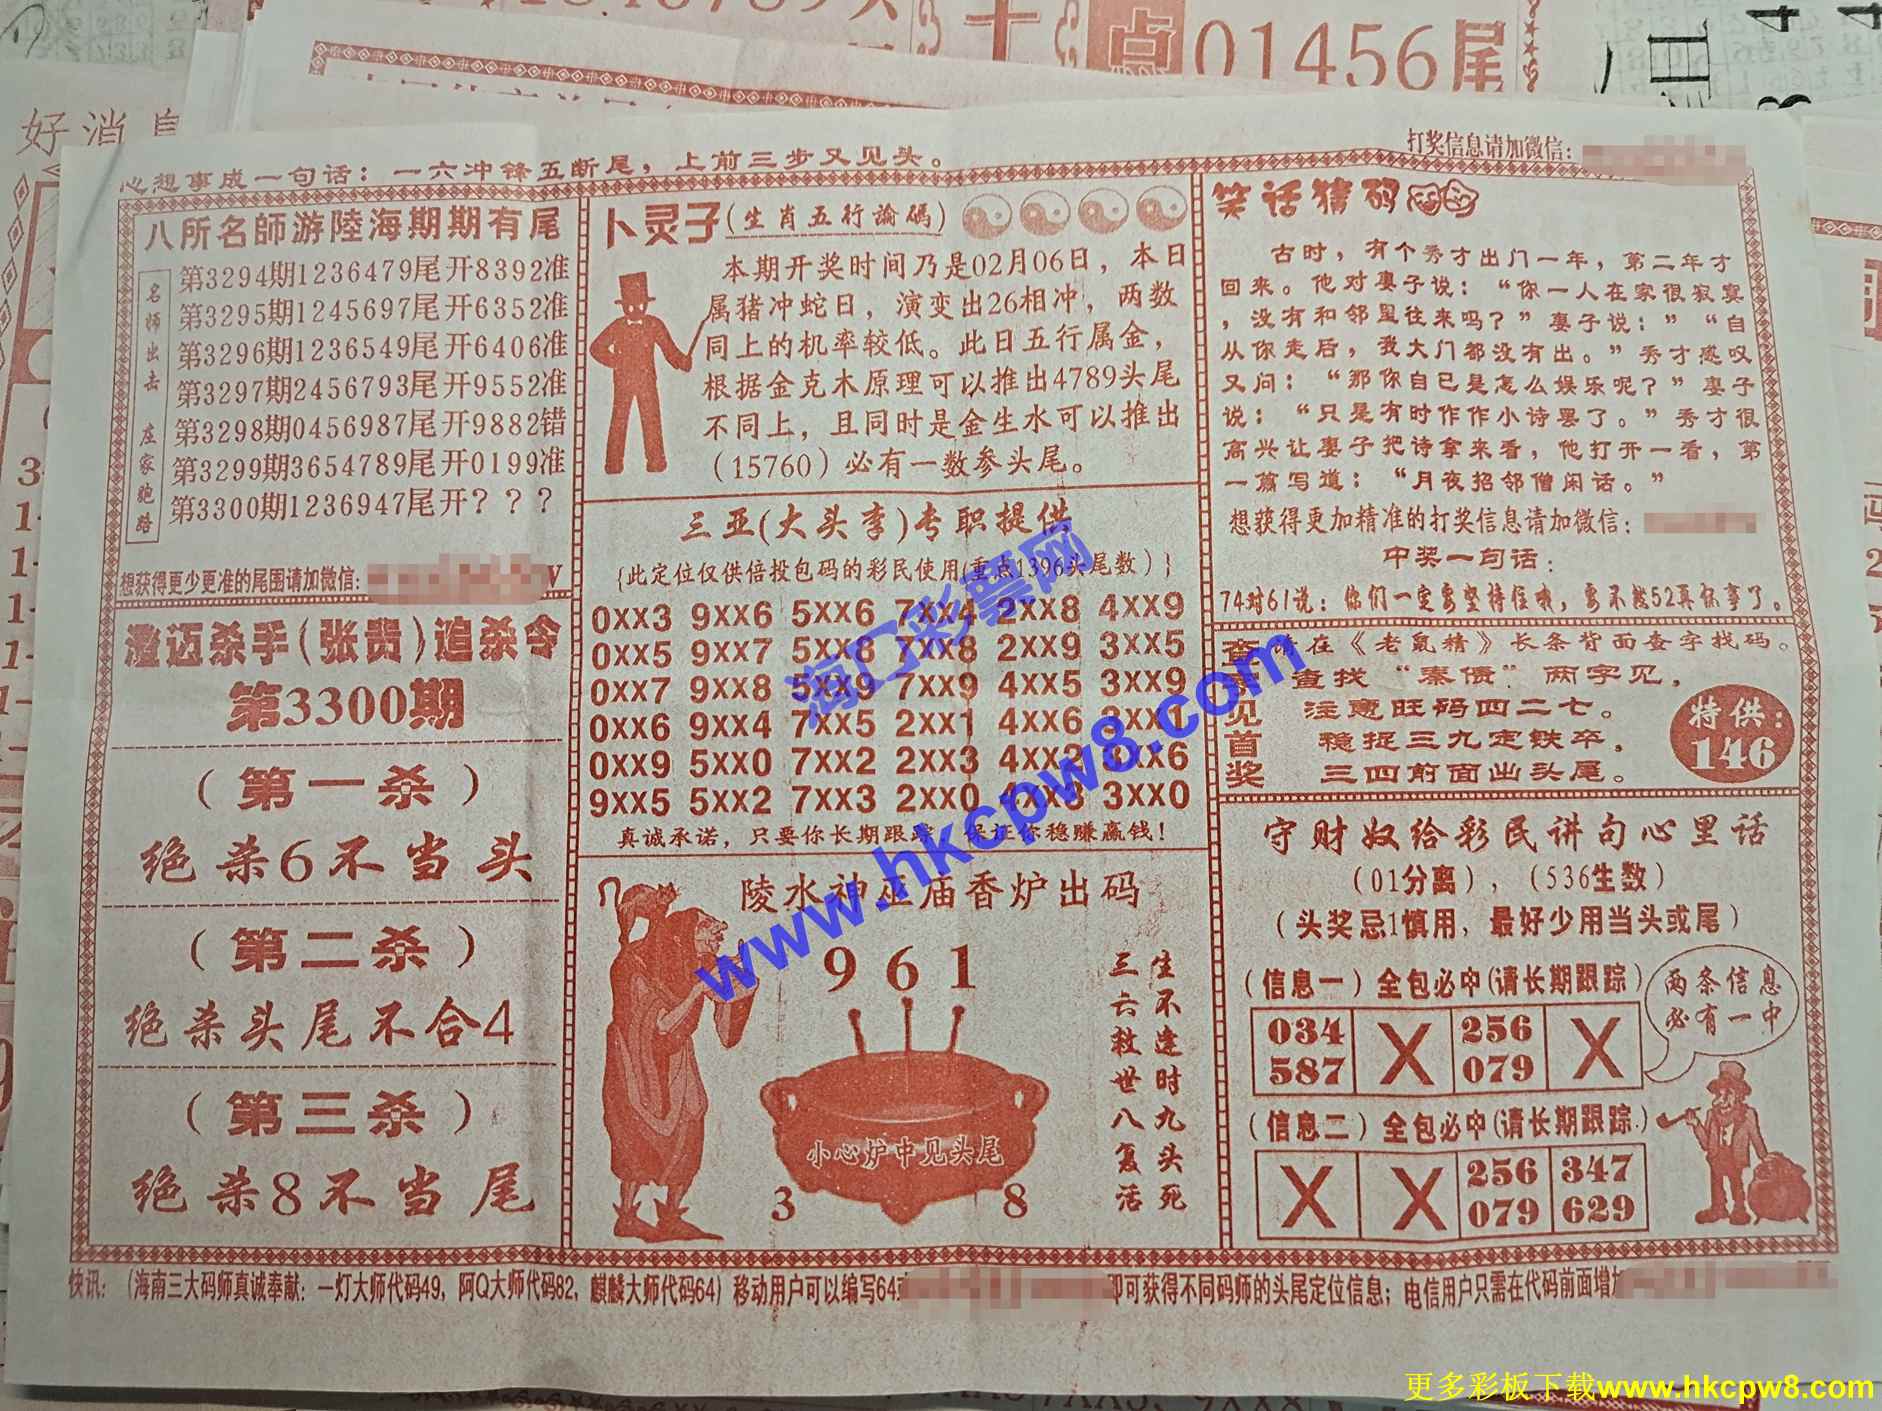 01456尾
点
好消息
打奖信息请加微信：
心想事成一句话：一六冲锋五断尾，上前三步又见头。
八所名師游陸海期期有尾
名师出击 庄家跑路
第3294期1236479尾开8392准
第3295期1245697尾开6352准
第3296期1236549尾开6406准
第3297期2456793尾开9552准
第3298期0456987尾开9882错
第3299期3654789尾开0199准
第3300期1236947尾开？？？
想获得更少更准的尾围请加微信：
澄迈杀手(张贵)追杀令
第3300期
（第一杀）
绝杀6不当头
（第二杀）
绝杀头尾不合4
（第三杀）
绝杀8不当尾
卜灵子(生肖五行論碼)
本期开奖时间乃是02月06日，本日
属猪冲蛇日，演变出26相冲，两数
同上的机率较低。此日五行属金，
根据金克木原理可以推出4789头尾
不同上，且同时是金生水可以推出
（15760）必有一数参头尾。
三亚(大头李)专职提供
{此定位仅供倍投包码的彩民使用(重点1396头尾数）}
0xx3 9xx6 5xx6 7xx4 2xx8 4xx9
0xx5 9xx7 5xx8 7xx8 2xx9 3xx5
0xx7 9xx8 5xx9 7xx9 4xx5 3xx9
0xx6 9xx4 7xx5 2xx1 4xx6 3xx1
0xx9 5xx0 7xx2 2xx3 4xx2 3xx6
9xx5 5xx2 7xx3 2xx0 4xx3 3xx0
真诚承诺，只要你长期跟踪，保证你稳赚赢钱！
陵水神巫庙香炉出码
961
生不逢时九头死
三六救世八复活
小心炉中见头尾
3 8
笑话猜码
古时，有个秀才出门一年，第二年才
回来。他对妻子说：“你一人在家很寂寞
，没有和邻里往来吗？”妻子说：”“自
从你走后，我大门都没有出。”秀才感叹
又问：“那你自已是怎么娱乐呢？”妻子
说：“只是有时作作小诗罢了。”秀才很
高兴让妻子把诗拿来看，他打开一看，第
一篇写道：“月夜招邻僧闲话。”
想获得更加精准的打奖信息请加微信：
中奖一句话：
74对61说：你们一定要坚持住哦，要不然52再你事了。
查字见首奖
请在《老鼠精》长条背面查字找码。
查找“秦债”两字见，
注意旺码四二七。
稳捉三九定铁卒，
三四前面出头尾。
特供：
146
守财奴给彩民讲句心里话
（01分离），（536生数）
（头奖忌1慎用，最好少用当头或尾）
（信息一）全包必中(请长期跟踪)
034 587 X 256 079 X
两条信息
必有一中
（信息二）全包必中(请长期跟踪.)
X X 256 079 347 629
快讯：（海南三大码师真诚奉献：一灯大师代码49，阿Q大师代码82，麒麟大师代码64）移动用户可以编写64或
即可获得不同码师的头尾定位信息；电信用户只需在代码前面增加
海口彩票网
www.hkcpw8.com
更多彩板下载www.hkcpw8.com